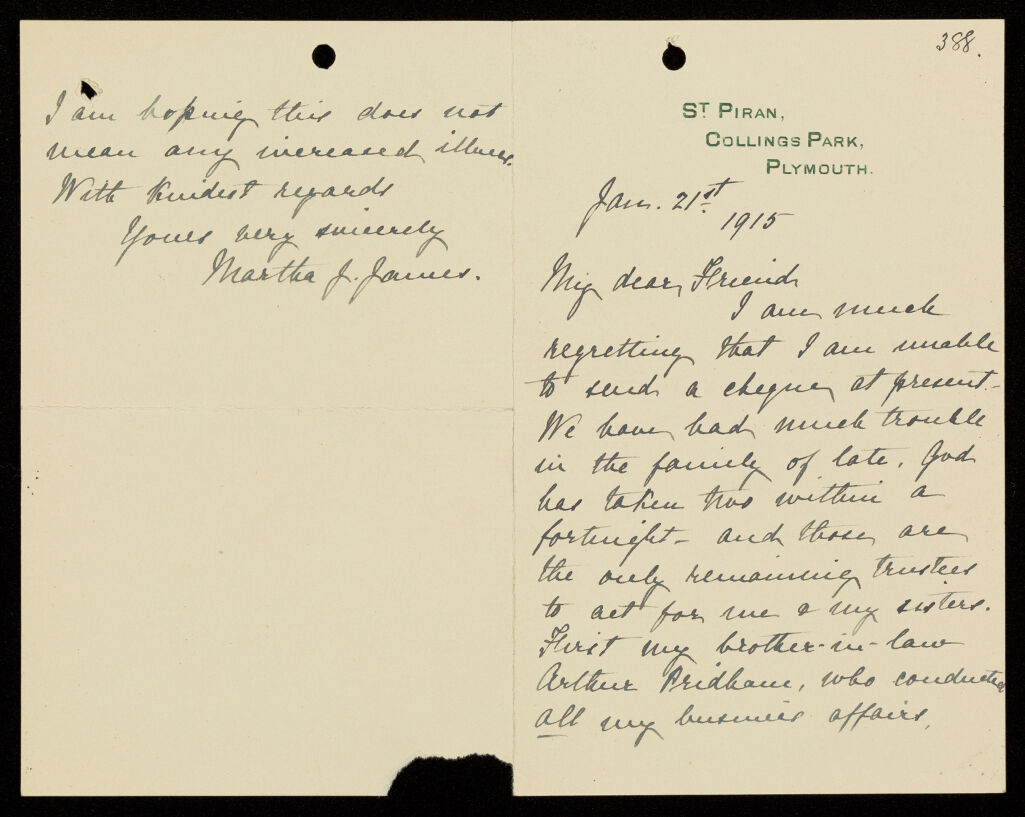 388.
ST PIRAN,
COLLINGS PARK,
PLYMOUTH.
Jan. 21st
1915
My dear Friend
I am much
regretting that I am unable
to send a cheque at present.
We have had much trouble
in the family of late. God
has taken two within a
fortnight - and those are
the only remaining trustees
to act for me & my sisters.
First my brother-in-law
Arthur Pridham, who conducted
all my business affairs,
I am hoping this does not
mean any increased illness.
With kindest regards
Yours very sincerely
Martha J. James.